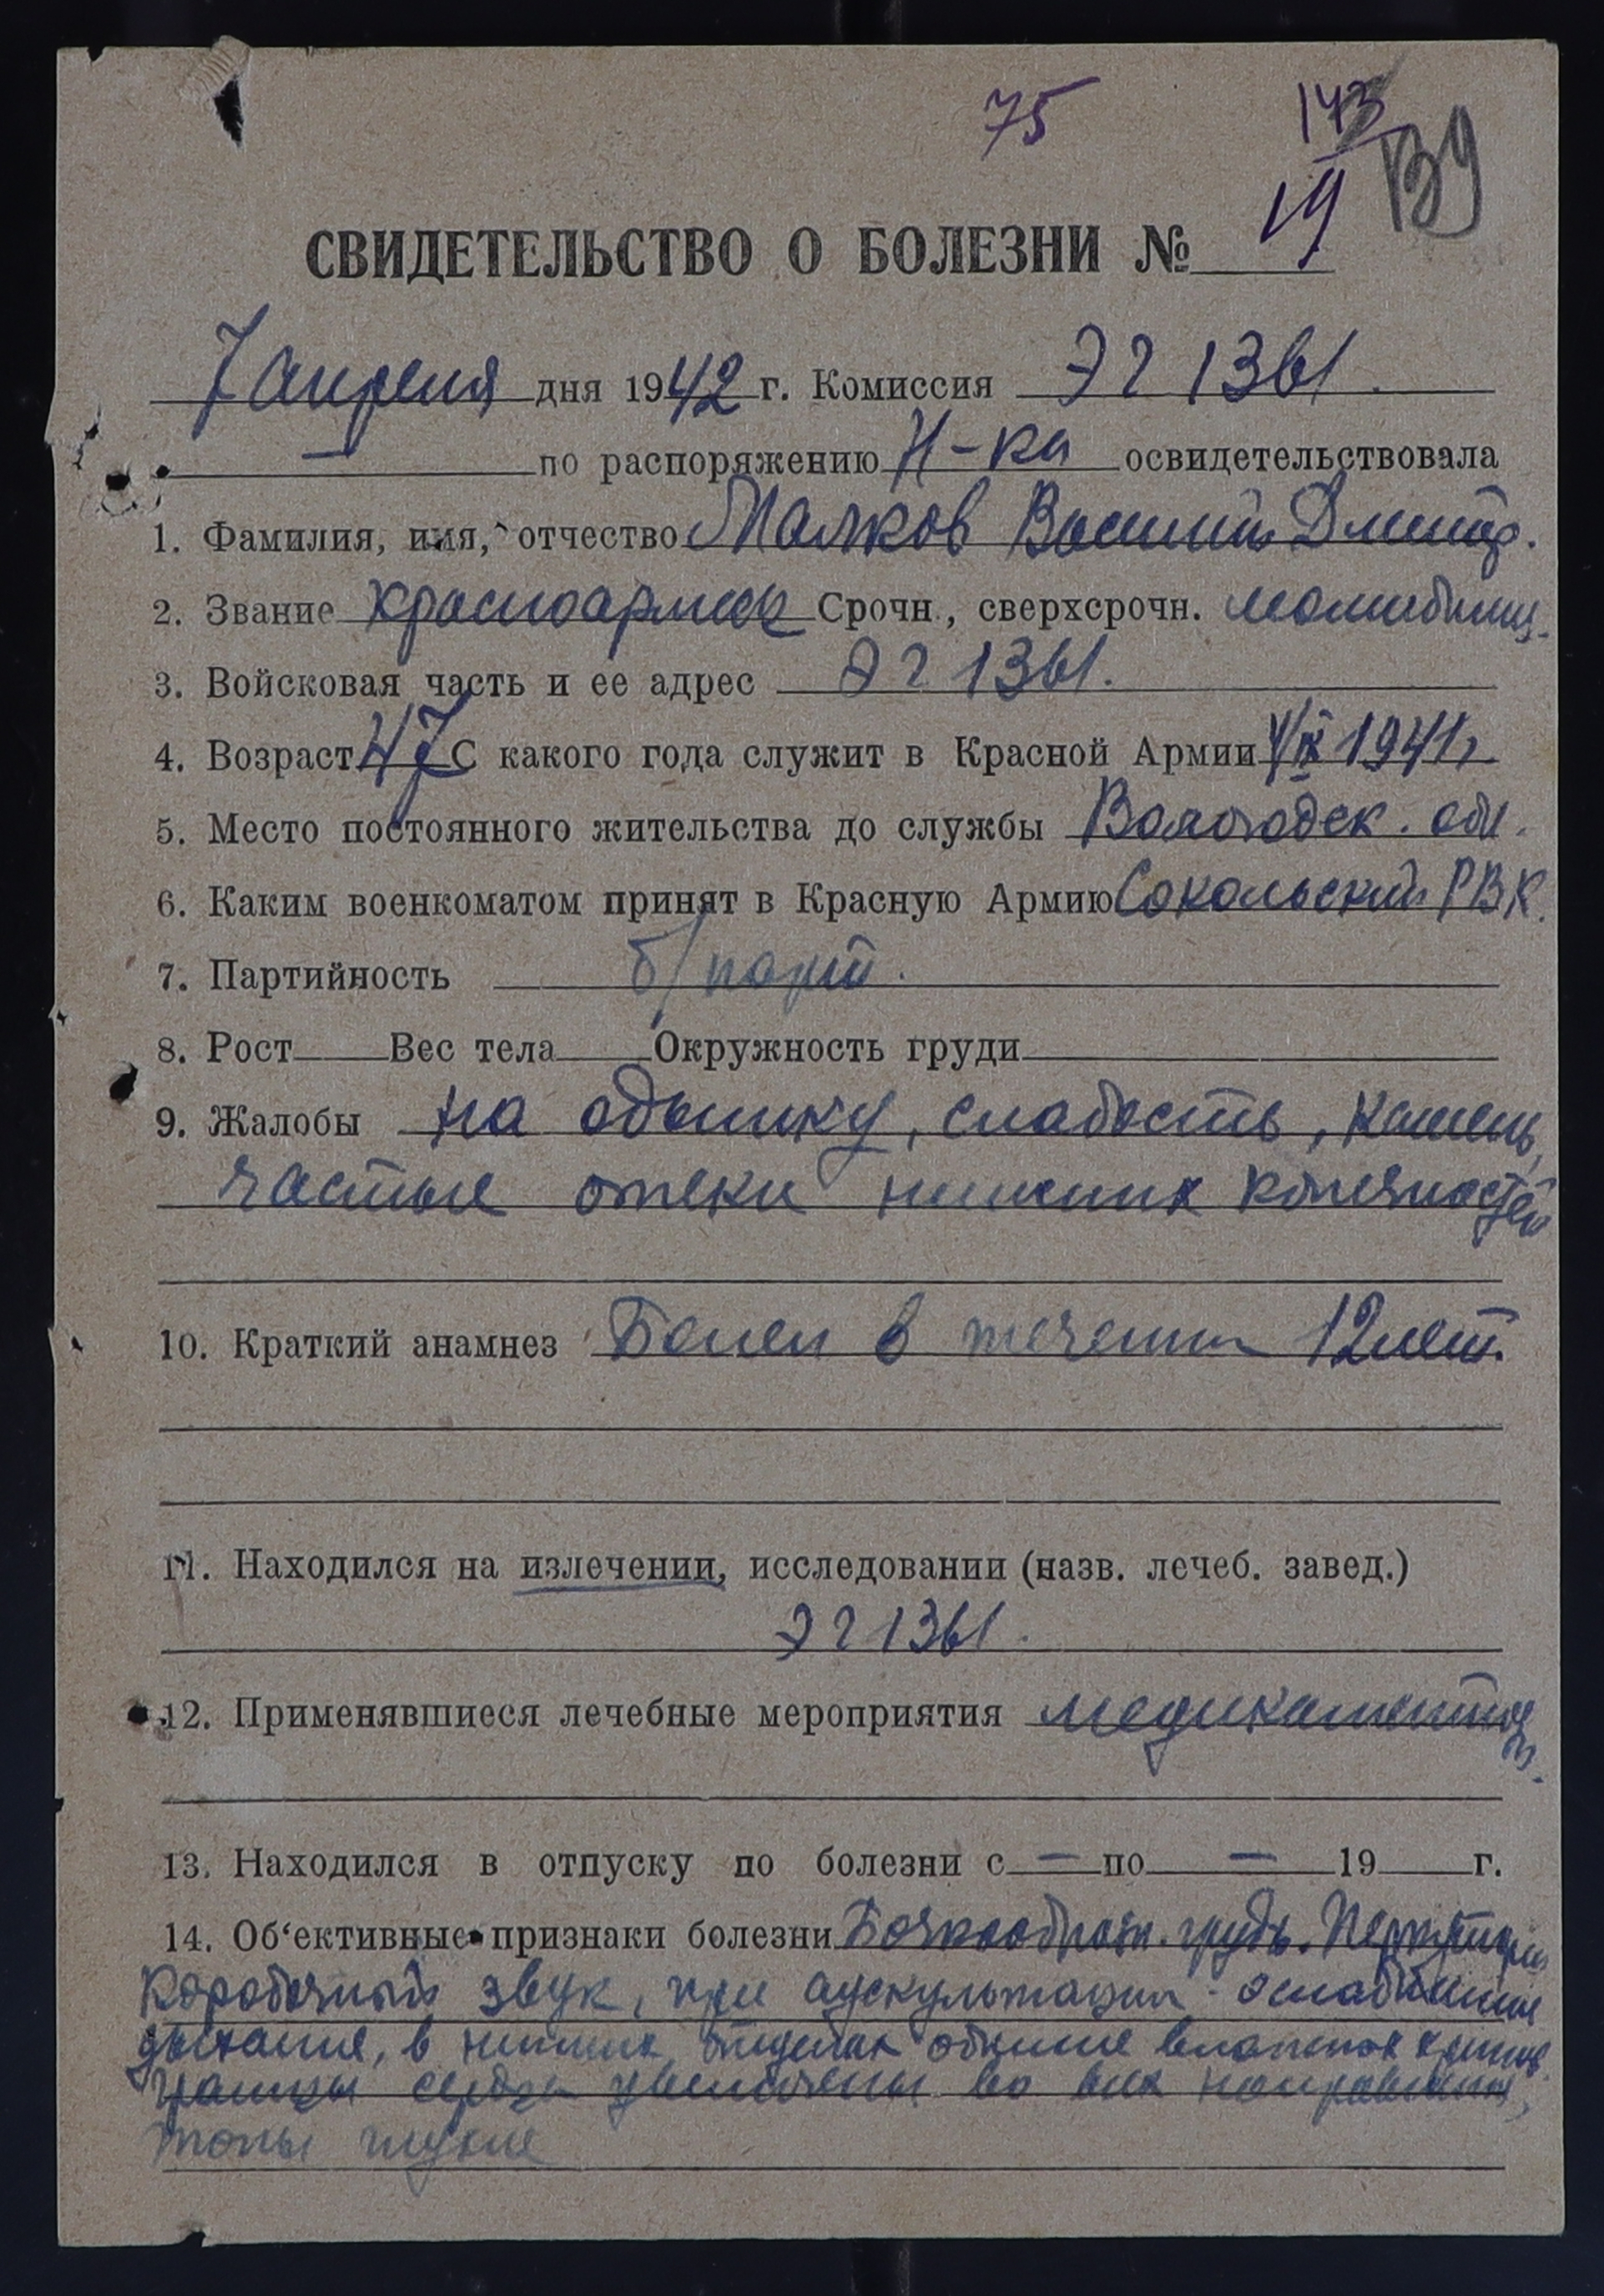 75 143
ВУ
СВИДЕТЕЛЬСТВО О БОЛЕЗНИ № 19
7 апреля дня 1942 г. Комиссия ЭГ 1361.
— по распоряжению Н-ка освидетельствовала
1. Фамилия, имя, отчество Малков Василий Дмитр.
2. Звание красноармеец Срочн., сверхсрочн. мобилиз.
3. Войсковая часть и ее адрес ЭГ 1361.
4. Возраст 47 С какого года служит в Красной Армии 1941 г.
5. Место постоянного жительства до службы Вологодск. обл.
6. Каким военкоматом принят в Красную Армию Сокольский РВК.
7. Партийность б/парт.
8. Рост Вес тела Окружность груди
9. Жалобы на одышку, слабость, кашель,
частые отеки нижних конечностей
10. Краткий анамнез Болен в течении 12 лет.
11. Находился на излечении, исследовании (назв. лечеб. завед.)
ЭГ 1361.
12. Применявшиеся лечебные мероприятия медикаментоз.
13. Находился в отпуску по болезни с — по — 19 г.
14. Об‘ективные признаки болезни Бочкообразн. грудь.
Коробочный звук, при аускультации ослабленное
дыхание, в нижних отделах обилие влажных хрипов.
Границы сердца увеличены во всех направлениях,
тоны глухие